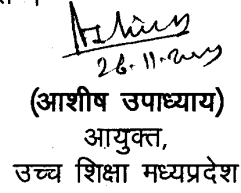 26.11.2009
(आशीष उपाध्याय)
आयुक्त,
उच्च शिक्षा मध्यप्रदेश